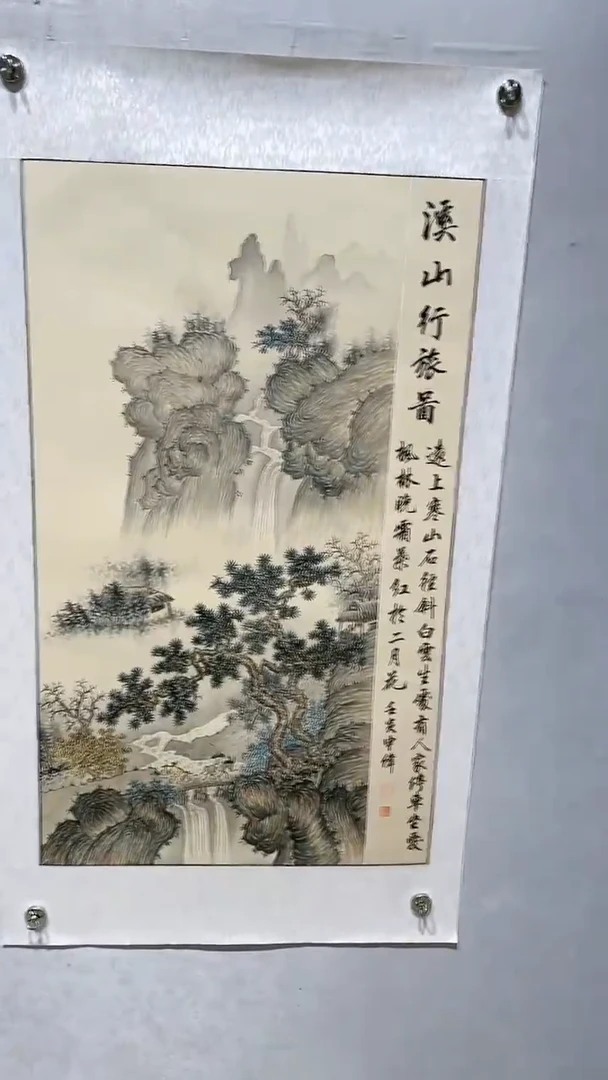 溪山行旅啚
遠上寒山石径斜白雲生處有人家停車坐愛
楓林晚霜葉红於二月花